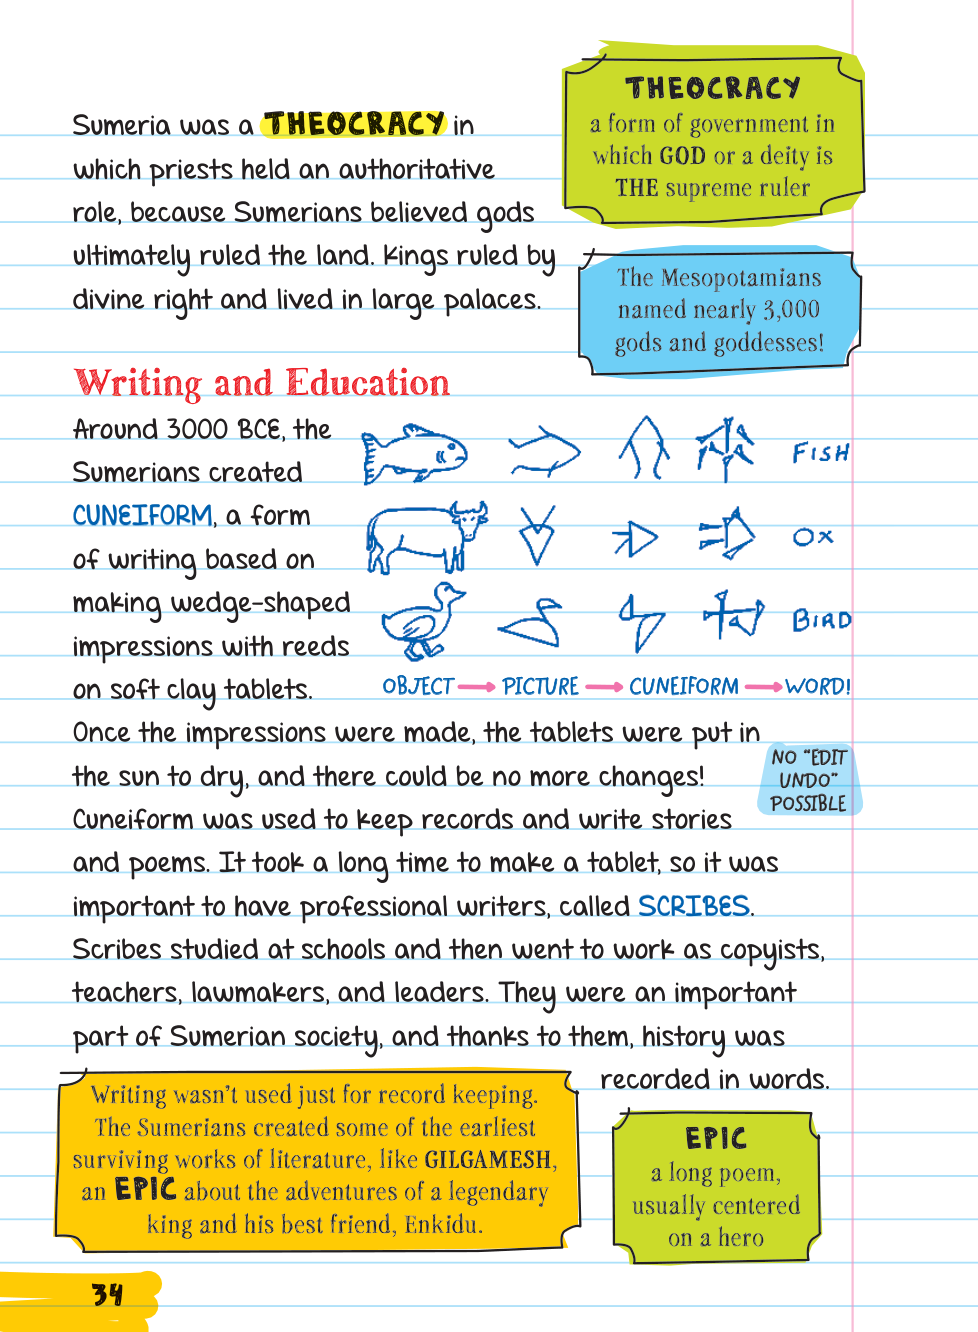 Sumeria was a THEOCRACY in
which priests held an authoritative
role, because Sumerians believed gods
ultimately ruled the land. Kings ruled by
divine right and lived in large palaces.
THEOCRACY
a form of government in
which GOD or a deity is
THE supreme ruler
The Mesopotamians
named nearly 3,000
gods and goddesses!
Writing and Education
Around 3000 BCE, the
Sumerians created
CUNEIFORM, a form
of writing based on
making wedge-shaped
impressions with reeds
on soft clay tablets.
FISH
OX
BIRD
OBJECT PICTURE CUNEIFORM WORD!
Once the impressions were made, the tablets were put in
the sun to dry, and there could be no more changes!
NO "EDIT
UNDO"
POSSIBLE
Cuneiform was used to keep records and write stories
and poems. It took a long time to make a tablet, so it was
important to have professional writers, called SCRIBES.
Scribes studied at schools and then went to work as copyists,
teachers, lawmakers, and leaders. They were an important
part of Sumerian society, and thanks to them, history was
recorded in words.
Writing wasn't used just for record keeping.
The Sumerians created some of the earliest
surviving works of literature, like GILGAMESH,
an EPIC about the adventures of a legendary
king and his best friend, Enkidu.
EPIC
a long poem,
usually centered
on a hero
34